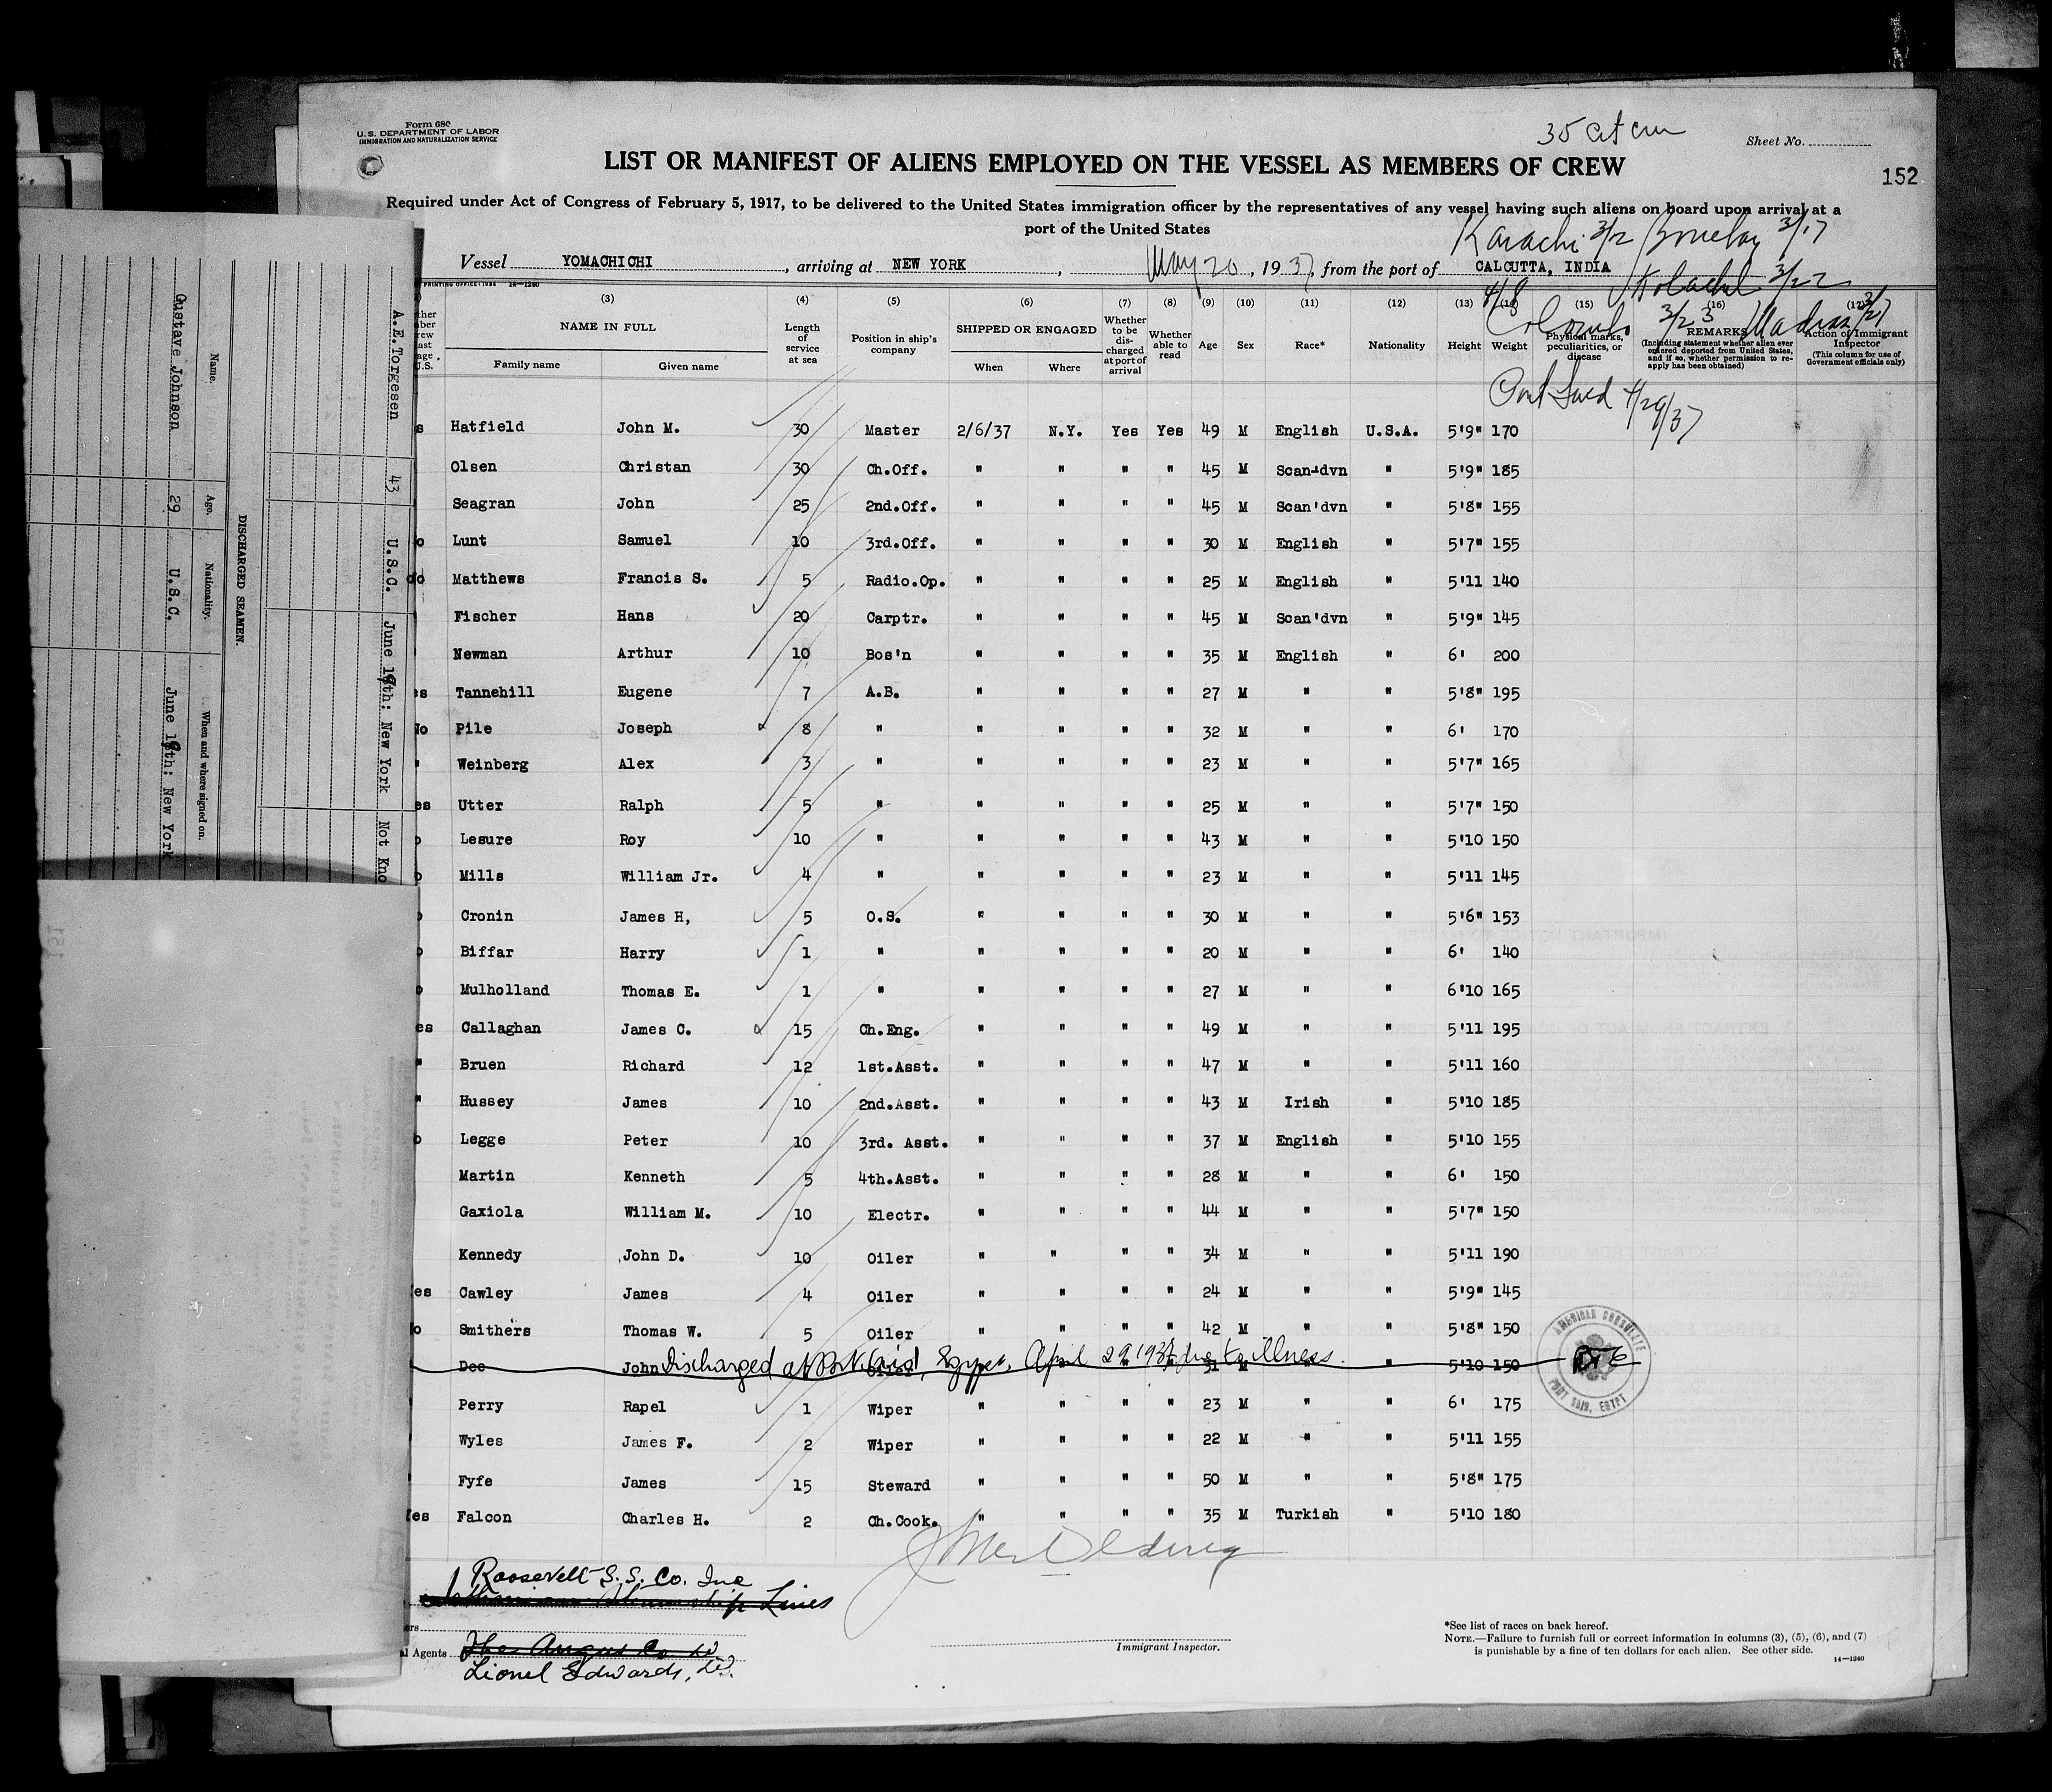 Form 680
U.S. DEPARTMENT OF LABOR
IMMIGRATION AND NATURALIZATION SERVICE
35 cit crew
Sheet No.
LIST OR MANIFEST OF ALIENS EMPLOYED ON THE VESSEL AS MEMBERS OF CREW
152
Required under Act of Congress of February 5, 1917, to be delivered to the United States immigration officer by the representatives of any vessel having such aliens on board upon arrival at a
port of the United States
Karachi 3/2 Bombay 3/17
Vessel YOMACHICHI, arriving at NEW YORK, May 20, 1937, from the port of CALCUTTA, INDIA
Kolachel 3/22
4/8 Colombo 3/23 Madras 3/27
PRINTING OFFICE: 1934 14—1240
(3) (4) (5) (6) (7) (8) (9) (10) (11) (12) (13) (14) (15) (16) (17)
NAME IN FULL
Family name Given name
Length of service at sea
Position in ship's company
SHIPPED OR ENGAGED
When Where
Whether to be discharged at port of arrival
Whether able to read
Age Sex Race* Nationality Height Weight
Physical marks, peculiarities, or disease
REMARKS
(Including statement whether alien ever ordered deported from United States, and if so, whether permission to reapply has been obtained)
Action of Immigrant Inspector
(This column for use of Government officials only)
Port Said 4/29/37
s Hatfield John M. 30 Master 2/6/37 N.Y. Yes Yes 49 M English U.S.A. 5'9" 170
Olsen Christan 30 Ch.Off. " " " " 45 M Scan-dvn " 5'9" 185
Seagran John 25 2nd.Off. " " " " 45 M Scan'dvn " 5'8" 155
o Lunt Samuel 10 3rd.Off. " " " " 30 M English " 5'7" 155
do Matthews Francis S. 5 Radio.Op. " " " " 25 M English " 5'11 140
Fischer Hans 20 Carptr. " " " " 45 M Scan'dvn " 5'9" 145
Newman Arthur 10 Bos'n " " " " 35 M English " 6' 200
es Tannehill Eugene 7 A.B. " " " " 27 M " " 5'8" 195
No Pile Joseph 8 " " " " " 32 M " " 6' 170
" Weinberg Alex 3 " " " " " 23 M " " 5'7" 165
es Utter Ralph 5 " " " " " 25 M " " 5'7" 150
o Lesure Roy 10 " " " " " 43 M " " 5'10 150
o Mills William Jr. 4 " " " " " 23 M " " 5'11 145
o Cronin James H, 5 O.S. " " " " 30 M " " 5'6" 153
o Biffar Harry 1 " " " " " 20 M " " 6' 140
o Mulholland Thomas E. 1 " " " " " 27 M " " 6'10 165
es Callaghan James C. 15 Ch.Eng. " " " " 49 M " " 5'11 195
" Bruen Richard 12 1st.Asst. " " " " 47 M " " 5'11 160
" Hussey James 10 2nd.Asst. " " " " 43 M Irish " 5'10 185
o Legge Peter 10 3rd. Asst. " " " " 37 M English " 5'10 155
Martin Kenneth 5 4th.Asst. " " " " 28 M " " 6' 150
Gaxiola William M. 10 Electr. " " " " 44 M " " 5'7" 150
Kennedy John D. 10 Oiler " " " " 34 M " " 5'11 190
es Cawley James 4 Oiler " " " " 24 M " " 5'9" 145
o Smithers Thomas W. 5 Oiler " " " " 42 M " " 5'8" 150
Dee John Discharged at Port Said, Egypt, April 29 1937, due to illness. " 5'10 150
AMERICAN CONSULATE PORT SAID, EGYPT
Perry Rapel 1 Wiper " " " " 23 M " " 6' 175
Wyles James F. 2 Wiper " " " " 22 M " " 5'11 155
Fyfe James 15 Steward " " " " 50 M " " 5'8" 175
es Falcon Charles H. 2 Ch.Cook. " " " " 35 M Turkish " 5'10 180
Roosevelt S.S. Co. Inc
Steamship Lines
ers
l Agents The Angus Co Ld
Lionel Edwards, Ld.
Immigrant Inspector.
*See list of races on back hereof.
NOTE.—Failure to furnish full or correct information in columns (3), (5), (6), and (7)
is punishable by a fine of ten dollars for each alien. See other side.
14—1240
A.E.Torgesen 43 U.S.C. June 19th: New York Not Kno
DISCHARGED SEAMEN.
Name. Age. Nationality. When and where signed on.
Gustave Johnson 29 U.S.C. June 19th: New York
151